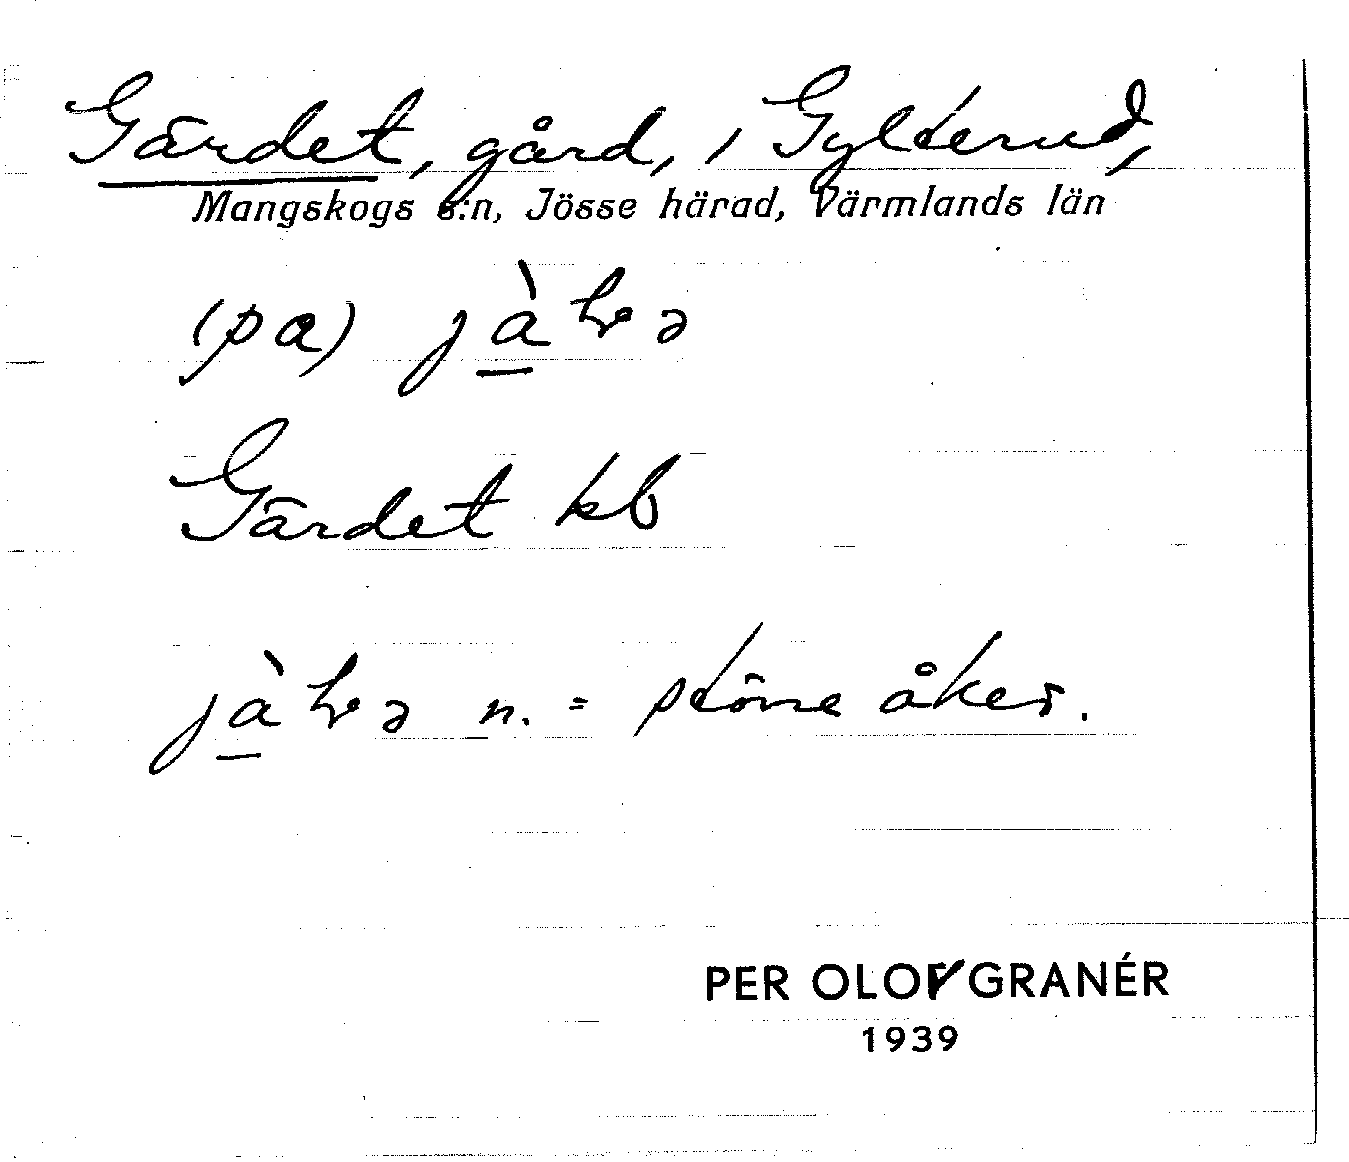 Gärdet, gård, i Gylterud,
Mangskogs s:n, Jösse härad, Värmlands län
(pa)
Gärdet kb
n. = större åker.
PER OLOF GRANÉR
1939